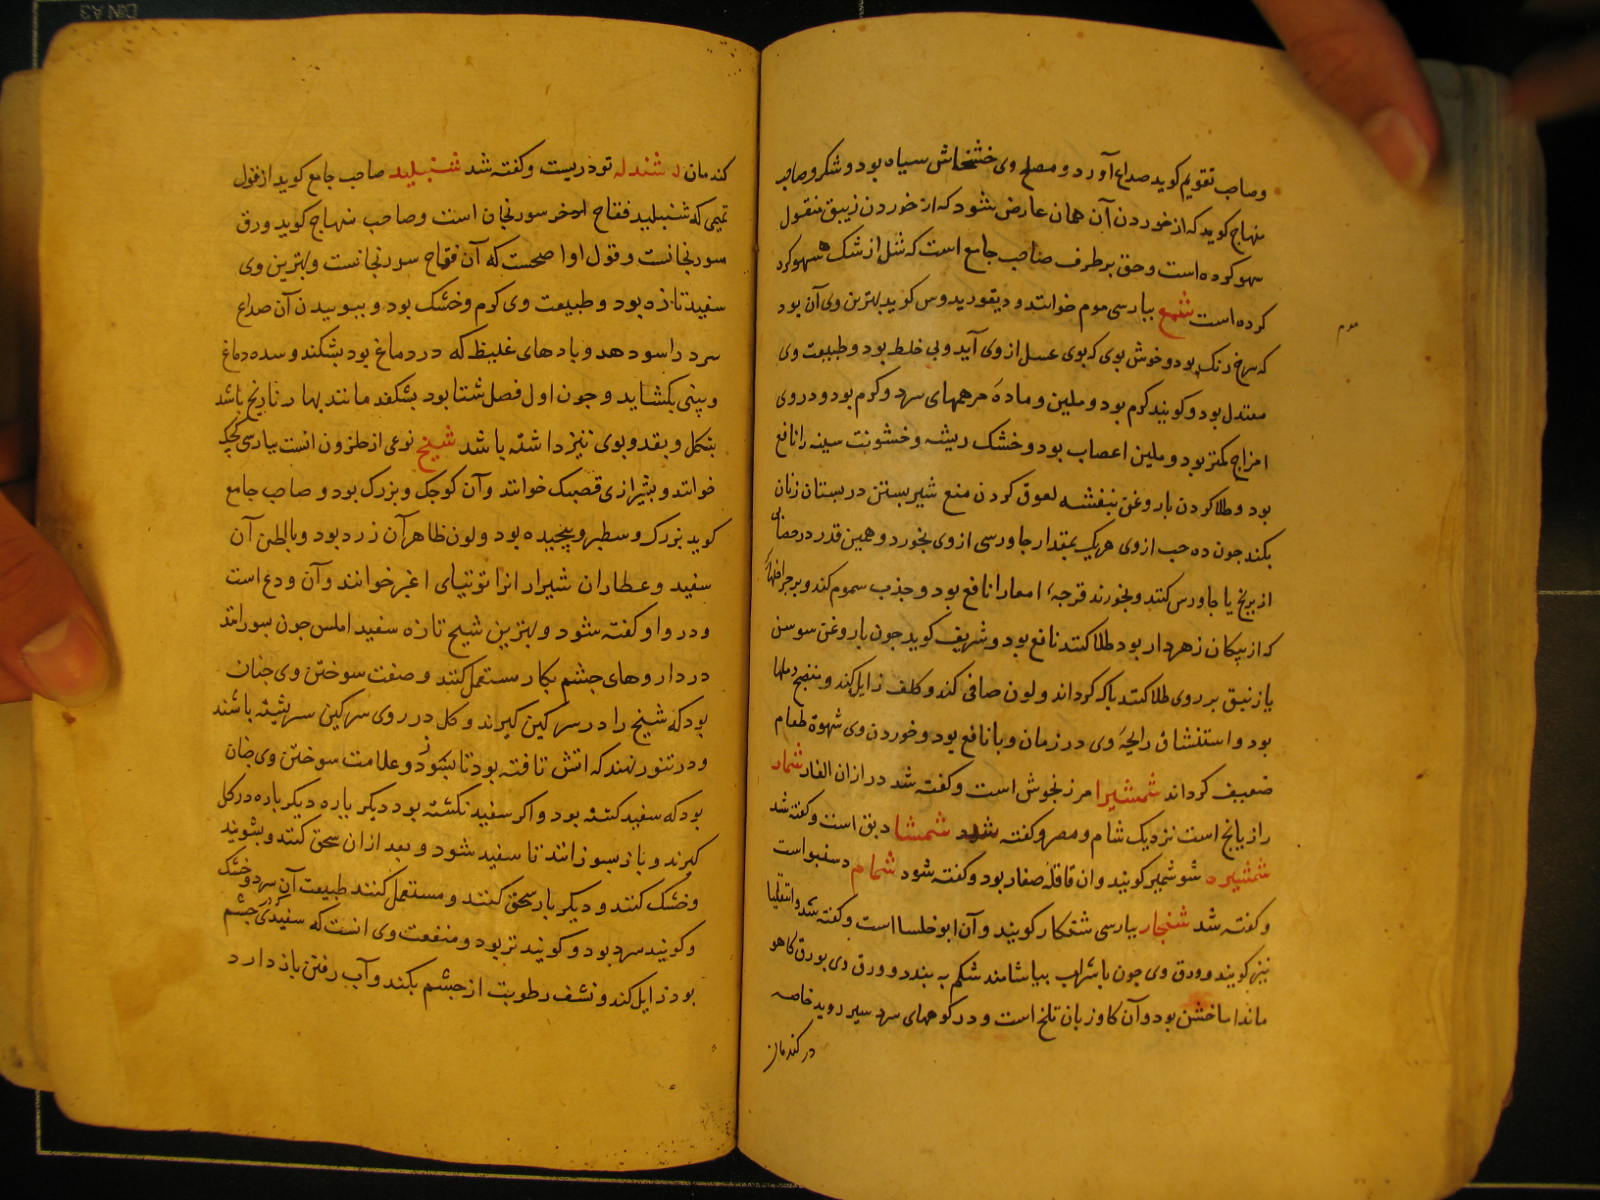 وصاحب تقویم کوید صداع آورد و مصلح وی خشخاش سیاه بود و شکر و صاحب
منهاج کوید که از خوردن آن همان عارض شود که از خوردن زیبق منقول
سهو کرده است و حق بر طرف صاحب جامع است که شل از شک سهو کرد
کرده است شمع بپارسی موم خوانند و دیقوریدوس کوید بهترین وی آن بود
موم
که سرخ رنک بود و خوش بوی که بوی عسل از وی آید و بی خلط بود و طبیعت وی
معتدل بود و کویند کرم بود و ملین و مادهٔ مرهمهای سرد و کرم بود و در وی
امزاج کمتر بود و ملین اعصاب بود و خشک ریشه و خشونت سینه را نافع
بود و طلا کردن با روغن بنفشه لعوق کردن منع شیر بستن در پستان زنان
بکند جون ده حب از وی هر یک بمقدار جاورسی از وی بخورد و همین قدر در
از برنج یا جاورس کنند و بخورند قرحهٔ امعا را نافع بود و جذب سموم کند و بر جراحتهای
که از پیکان زهردار بود طلا کنند نافع بود و شریف کوید جون با روغن سوسن
یا زنبق بر روی طلا کنند پاک کرداند و لون صافی کند و کلف زایل کند و منضج دملها
بود و استنشاق رایحهٔ وی در زمان وبا نافع بود و خوردن وی شهوة طعام
ضعیف کرداند شمشیرا مرزنجوش است و کفته شد در اذان الفار شمار
رازیانج است نزدیک شام و مصر و کفته شد شمشا دبق است و کفته شد
شمشیره شوشمیر کویند و ان قاقلهٔ صغار بود و کفته شود شمام دسنبو است
و کفته شد شنجار بپارسی شنکار کویند و آن ابو خلسا است و کفته شد و انقلیا
نیز کویند و ورق وی جون با شراب بیاشامند شکم به بندد و ورق وی بورق کاهو
ماند اما خشن بود و آن کاو زبان تلخ است و در کوههای سرد سیر روید خاصه
در کندمان
کندمان شندله تودریست و کفته شد شنبلید صاحب جامع کوید از قول
تمیمی که شنبلید فقاح سورنجان است و صاحب منهاج کوید ورق
سورنجانست و قول اوا صحست که آن فقاح سورنجانست و بهترین وی
سفید تازه بود و طبیعت وی کرم و خشک بود و ببوییدن آن صداع
سرد را سود دهد و بادهای غلیظ که در دماغ بود بشکند و سده دماغ
و بینی بکشاید و جون اول فصل شتا بود بشکفد مانند بهار نارنج باشد
بشکل و بقد و بوی نیز داشته باشد شنج نوعی از حلزون است بپارسی کجک
خوانند و بشیرازی قصبک خوانند و آن کوجک و بزرک بود و صاحب جامع
کوید بزرک و سطبر و پیچیده بود و لون ظاهر آن زرد بود و باطن آن
سفید و عطاران شیراز انرا توتیای اغبر خوانند و آن ودع است
و در واو کفته شود و بهترین شنج تازه سفید املس جون بسوزانند
در داروهای جشم بکار مستعمل کنند و صفت سوختن وی جنان
بود که شنج را در سرکین کیرند و کل در روی سرکین سرشته باشند
و در تنور نهند که اتش تافته بود تا بسوزد و علامت سوختن وی جنان
بود که سفید کشته بود و اکر سفید نکشته بود دیکر باره دیکر باره در کل
کیرند و باز بسوزانند تا سفید شود و بعد از ان سحق کنند و بشویند
و خشک کنند و دیکر بار سحق کنند و مستعمل کنند طبیعت آن سرد و خشک
و کویند سرد بود و کویند تر بود و منفعت وی انست که سفیدی جشم
بود زایل کند و نشف رطوبت از جشم بکند و آب رفتن باز دارد